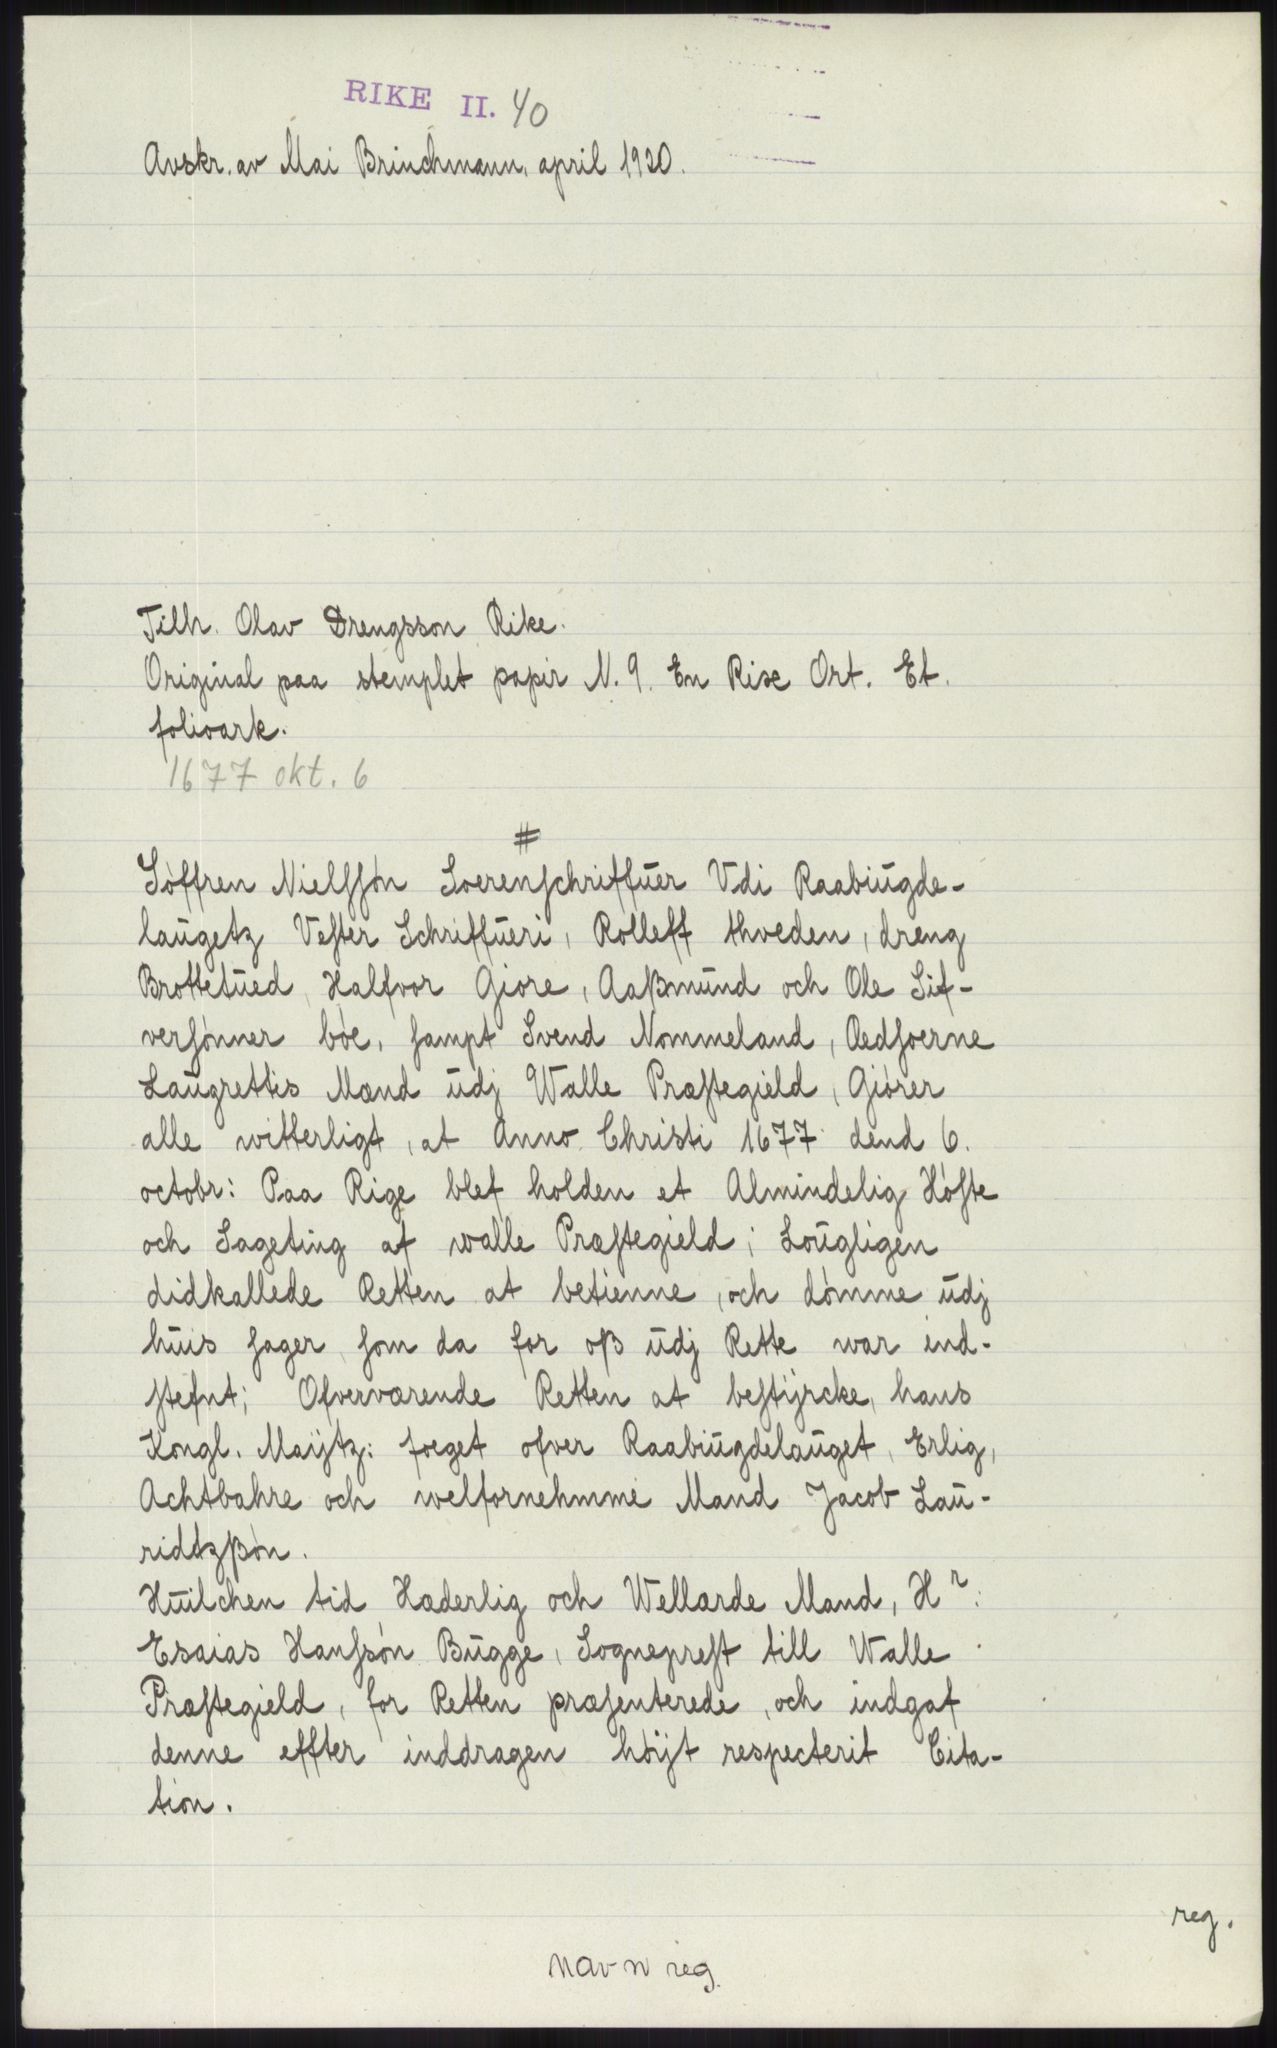 RIKE II. 40
Avskr. av Mai Brinchmann, april 1920.
Tilh. Olav Drengsson Rike.
Original paa stemplet papir N. 9. En Rixe Ort. Et.
folioark.
1677 okt. 6
#
Søffren Nielſſøn Soerenſchriffuer Vdi Raabiugde-
laugetz Veſter Schriffueri, Rolleff thveden, dreng
Brottetued, Halfvor Giøre, Aaßmund och Ole Sif-
verſønner bøe, ſampt Svend Nommeland, Oedſoerne
Laugrettis Mænd udj Walle Præſtegield, Giører
alle witterligt, at Anno Christi 1677 dend 6.
octobr: Paa Rige blef holden et Almindelig Høſte
och Sageting af walle Præſtegield; Lougligen
didkallede Retten at betienne, och dømme udj
huis ſager, ſom da for oß udj Rette war ind-
ſtefnt; Ofverværende Retten at beſtÿrcke, hans
Kongl. Maÿtz: foeget ofver Raabiugdelauget, Erlig,
Achtbahre och welfornehmme Mand Jacob Lau-
ridtzßøn.
Huilchen tid Hæderlig och Wellærde Mand, Hr:
Esaias Hanſsøn Bugge, Sognepreſt till Walle
Præſtegield, for Retten præſenterede, och indgaf
denne effter inddragen høÿt respecterit Cita-
tion.
reg.
navn reg.